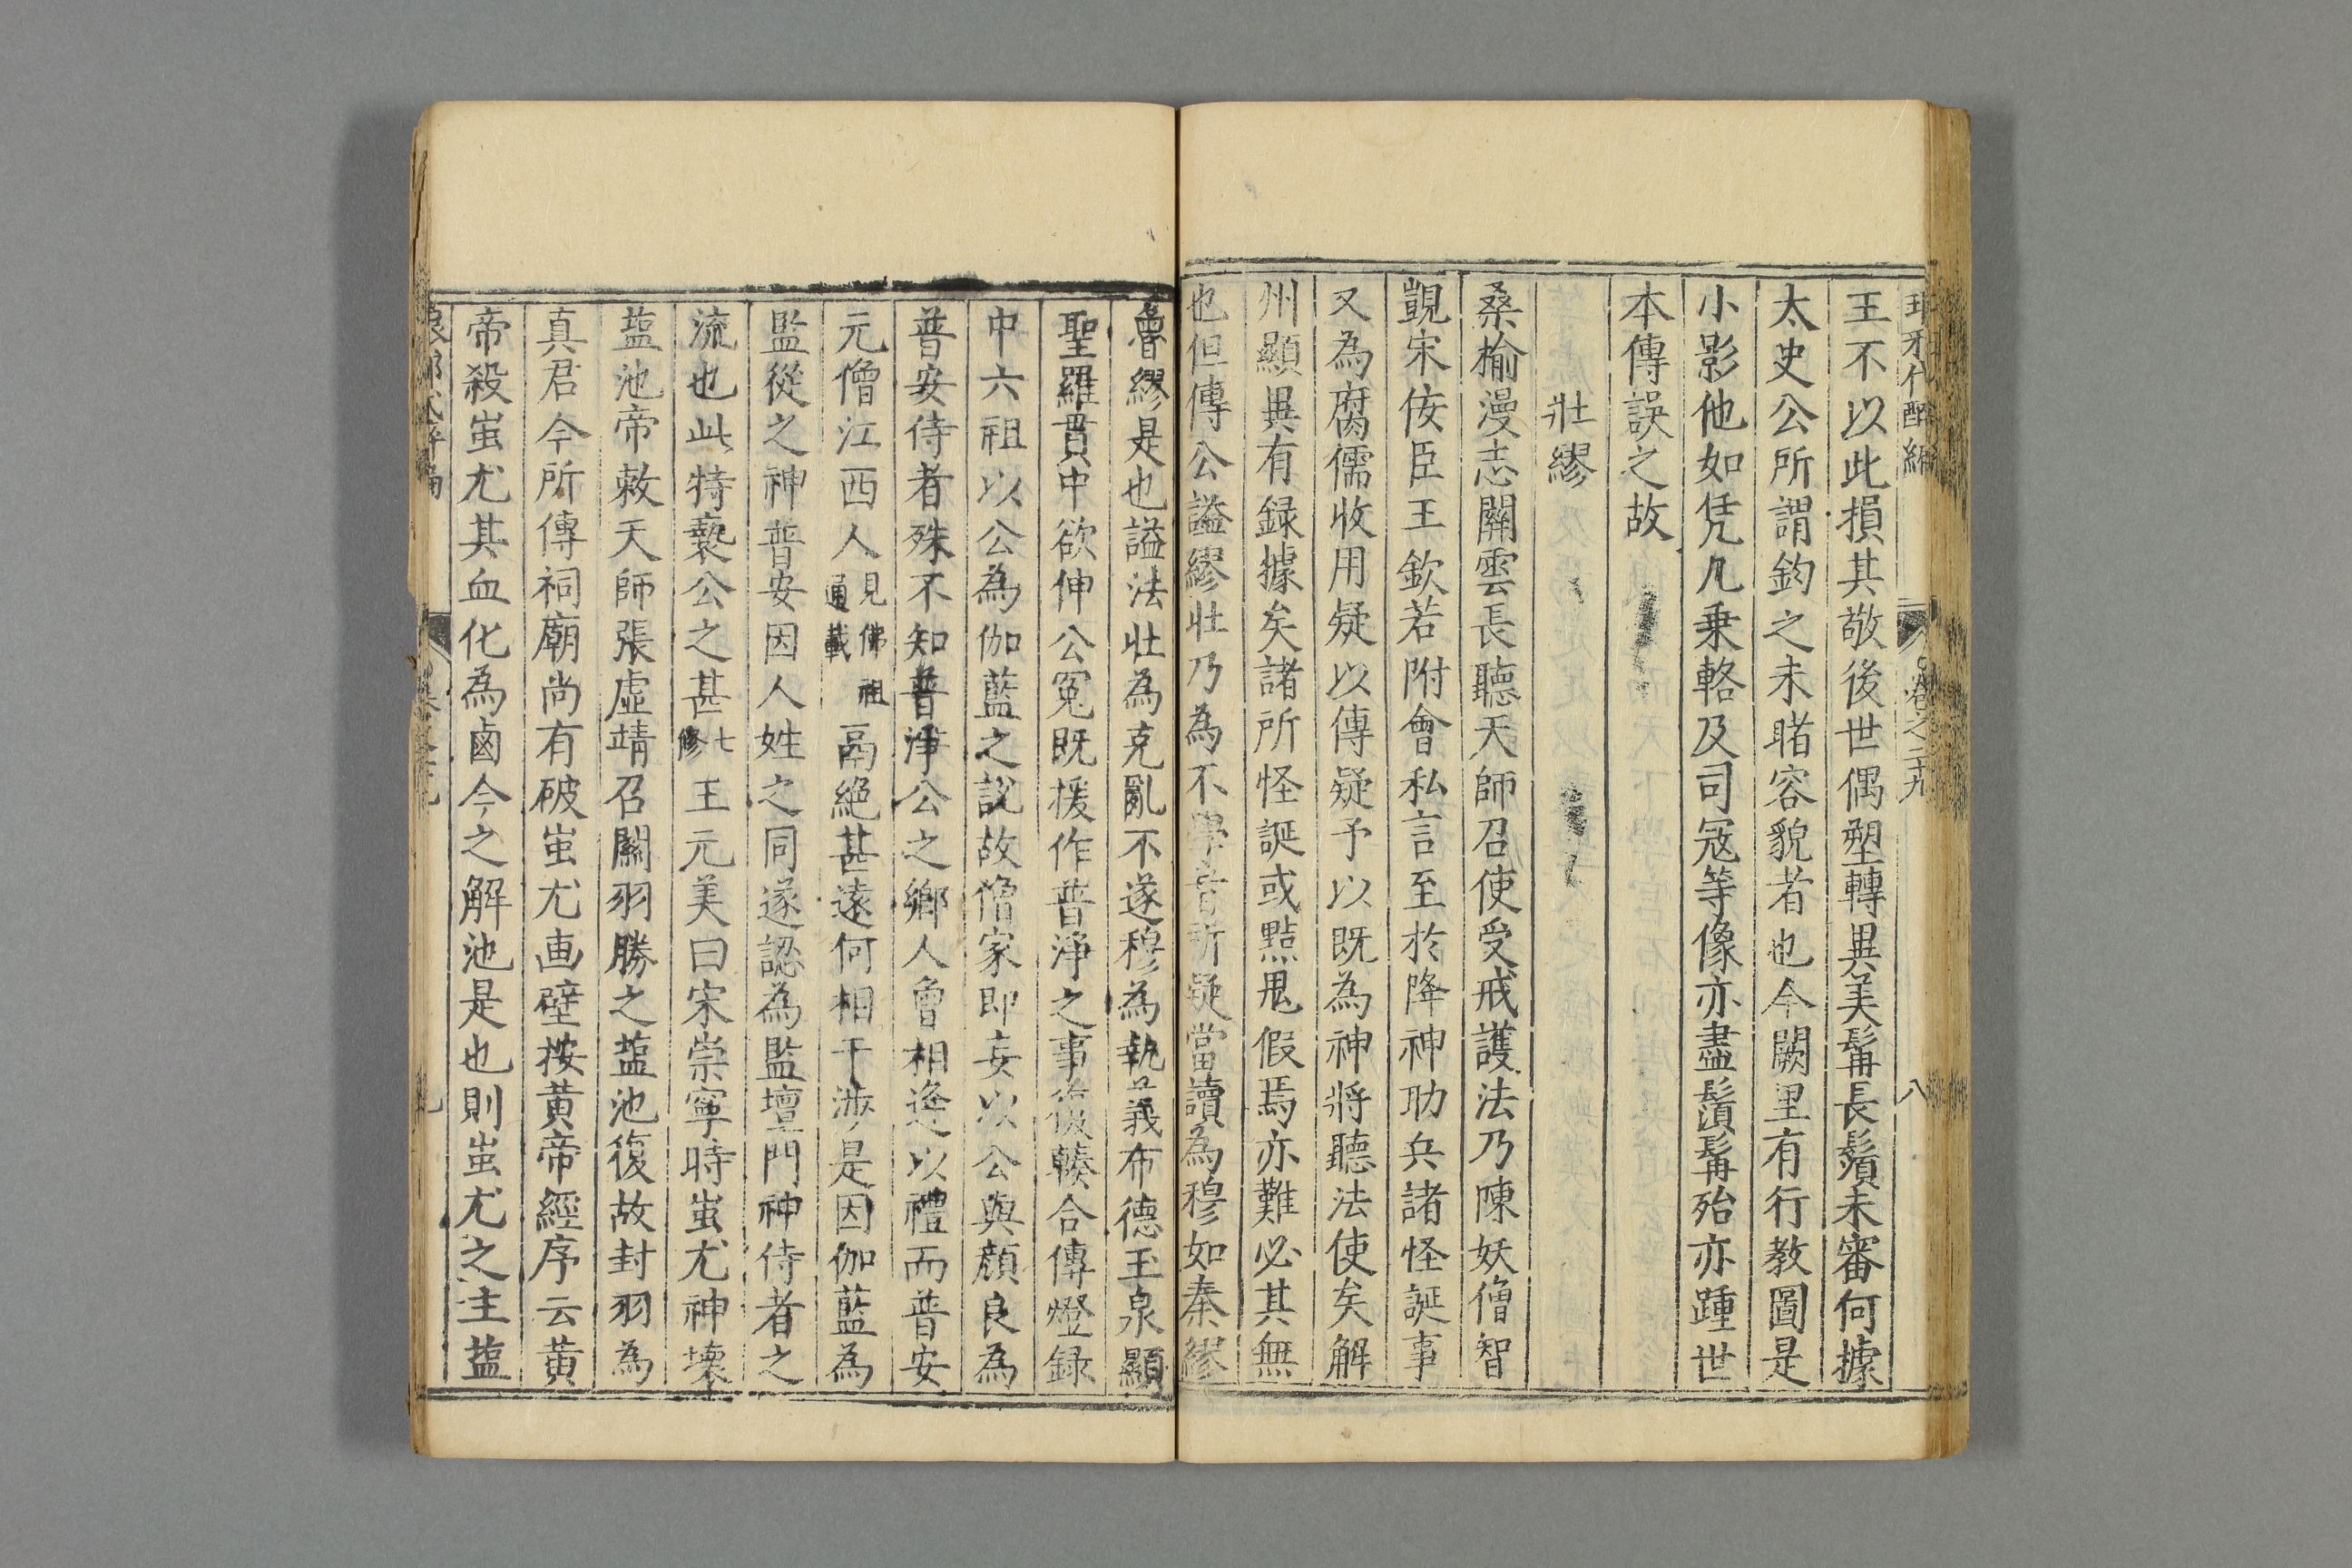 琅邪代醉編 卷之二十九 八
王不以此損其敬後世偶塑轉異美髯長鬚未審何據
太史公所謂鈞之未睹容貌者也今闕里有行教圖是
小影他如凭几乗輅及司冦等像亦盡鬚髯殆亦踵世
本傳誤之故
壯繆
桑榆漫志關雲長聽天師召使受戒護法乃陳妖僧智
覬宋侫臣王欽若附會私言至於降神助兵諸怪誕事
又為腐儒收用疑以傳疑予以既為神將聽法使矣解
州顯異有録據矣諸所怪誕或㸃鬼假焉亦難必其無
也但傳公謚繆壯乃為不學者所疑當讀為穆如秦繆
魯繆是也謚法壯為克亂不遂穆為執義布德玉泉顯
聖羅貫中欲伸公冤既援作普淨之事復輳合傳燈録
中六祖以公為伽藍之說故僧家即妄以公與顔良為
普安侍者殊不知普淨公之鄉人曾相逢以禮而普安
元僧江西人見佛祖通載鬲絕甚遠何相干涉是因伽藍為
監從之神普安因人姓之同遂認為監壇門神侍者之
流也此特褻公之甚七修王元美曰宋崇寧時蚩尤神壊
蓝池帝敕天師張虛靖召關羽勝之蓝池復故封羽為
真君今所傳祠廟尚有破蚩尤画壁按黄帝經序云黄
帝殺蚩尤其血化為鹵今之解池是也則蚩尤之主蓝